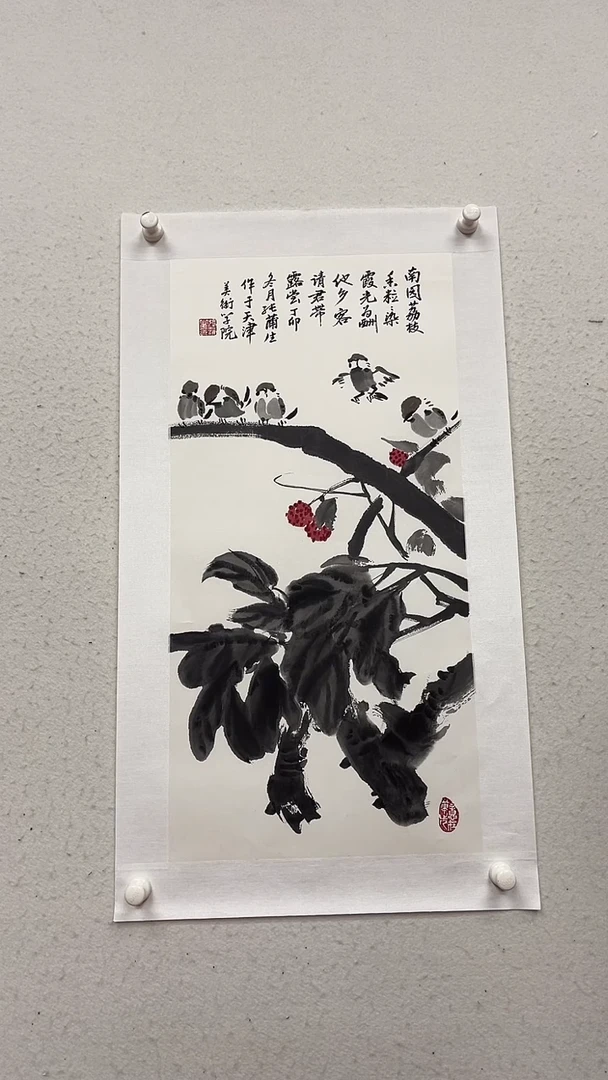 南园荔枝
香粒染
霞光为酬
他乡客
请君带
露尝丁卯
冬月
作于天津
美术学院